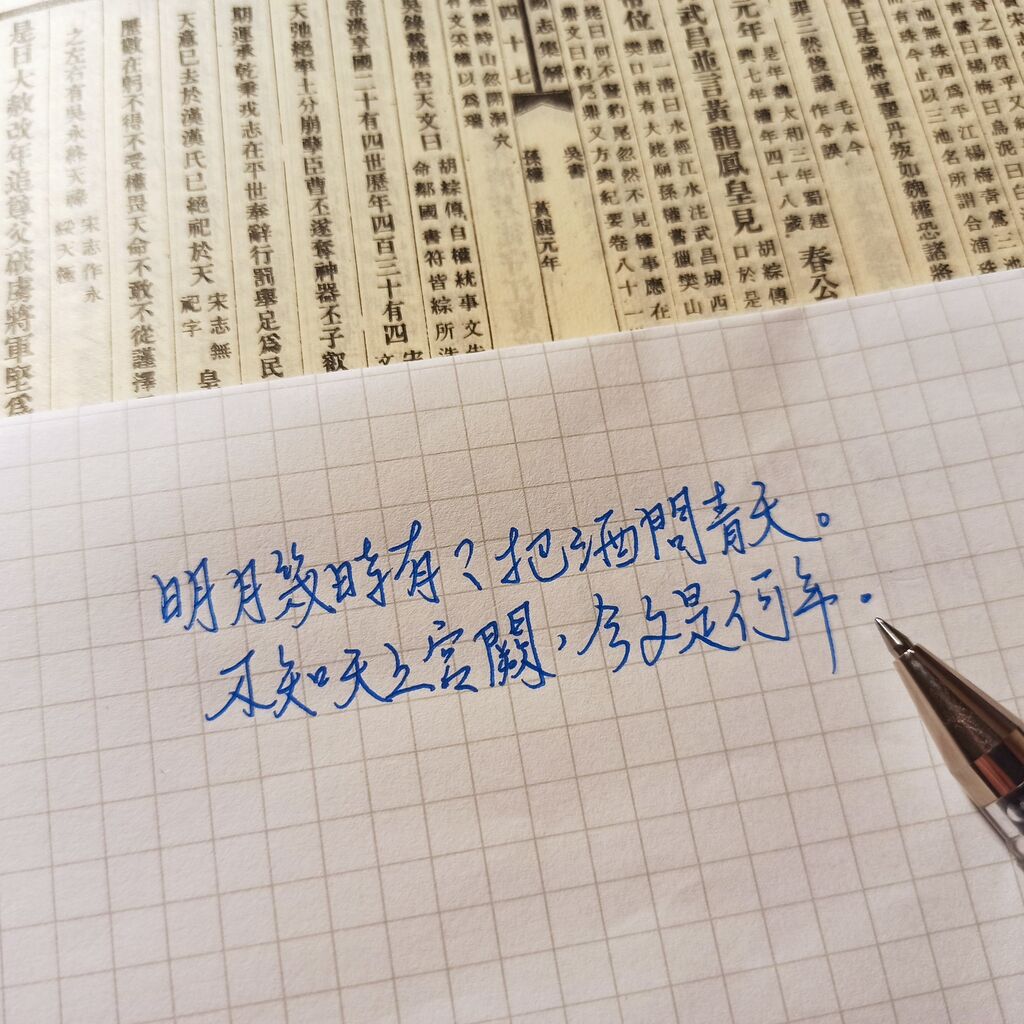 池無珠西為平江楊梅青鶯三池
而有珠今止以三池名所謂合浦珠
日是歲將軍翟丹叛如魏權恐諸將
罪三然後議
毛本今
作令誤
春公
元年
是年魏太和三年蜀建
興七年權年四十八歲
胡綜傳
武昌並言黃龍鳳皇見
口於是
帝位
一清曰水經江水注武昌城西
樊口南有大姥廟孫權嘗獵樊山
姥曰何不豎豹尾忽然不見權事應在
鼎文曰豹尾鼎又方輿紀要卷八十一
國志集解
四十七
吳書
孫權
黃龍元年
山忽開洞穴
有文采權以為瑞
吳錄載權告天文曰
胡綜傳自權統事
命鄰國書符皆綜所
帝漢享國二十有四世歷年四百三十有四
天弛絕率土分崩孽臣曹丕遂奪神器丕子叡
期運承乾秉戎志在平世奉辭行罰舉足為民
天意已去於漢漢氏已絕祀於天
宋志無
祀字
皇
歷數在躬不得不受權畏天命不敢不從謹擇
之左右有吳永終天祿
宋志作永
綏天極
是日大赦改年追尊父破虜將軍堅為
明月幾時有?把酒問青天。
不知天上宮闕,今夕是何年。